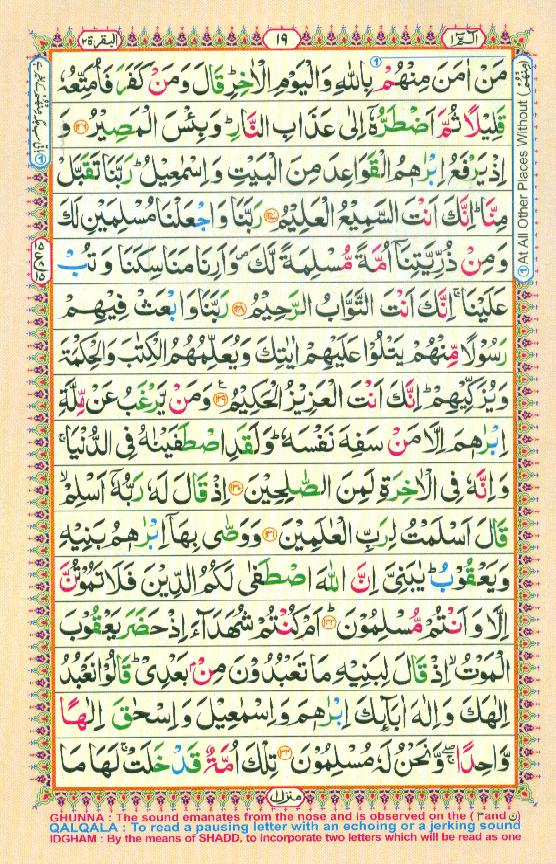 البقرة ٢
١٩
الٓمّٓ ١
مَنْ اٰمَنَ مِنْهُمْ بِاللّٰهِ وَالْيَوْمِ الْاٰخِرِ ؕ قَالَ وَمَنْ كَفَرَ فَاُمَتِّعُهٗ
قَلِيْلًا ثُمَّ اَضْطَرُّهٗۤ اِلٰى عَذَابِ النَّارِ ؕ وَبِئْسَ الْمَصِيْرُ ﴿۱۲۶﴾ وَ
اِذْ يَرْفَعُ اِبْرٰهٖمُ الْقَوَاعِدَ مِنَ الْبَيْتِ وَاِسْمٰعِيْلُ ؕ رَبَّنَا تَقَبَّلْ
مِنَّا ؕ اِنَّكَ اَنْتَ السَّمِيْعُ الْعَلِيْمُ ﴿۱۲۷﴾ رَبَّنَا وَاجْعَلْنَا مُسْلِمَيْنِ لَكَ
وَمِنْ ذُرِّيَّتِنَاۤ اُمَّةً مُّسْلِمَةً لَّكَ ۪ وَاَرِنَا مَنَاسِكَنَا وَتُبْ
عَلَيْنَا ۚ اِنَّكَ اَنْتَ التَّوَّابُ الرَّحِيْمُ ﴿۱۲۸﴾ رَبَّنَا وَابْعَثْ فِيْهِمْ
رَسُوْلًا مِّنْهُمْ يَتْلُوْا عَلَيْهِمْ اٰيٰتِكَ وَيُعَلِّمُهُمُ الْكِتٰبَ وَالْحِكْمَةَ
وَيُزَكِّيْهِمْ ؕ اِنَّكَ اَنْتَ الْعَزِيْزُ الْحَكِيْمُ ﴿۱۲۹﴾ وَمَنْ يَّرْغَبُ عَنْ مِّلَّةِ
اِبْرٰهٖمَ اِلَّا مَنْ سَفِهَ نَفْسَهٗ ؕ وَلَقَدِ اصْطَفَيْنٰهُ فِى الدُّنْيَا ۚ
وَاِنَّهٗ فِى الْاٰخِرَةِ لَمِنَ الصّٰلِحِيْنَ ﴿۱۳۰﴾ اِذْ قَالَ لَهٗ رَبُّهٗۤ اَسْلِمْ ۙ
قَالَ اَسْلَمْتُ لِرَبِّ الْعٰلَمِيْنَ ﴿۱۳۱﴾ وَوَصّٰى بِهَاۤ اِبْرٰهٖمُ بَنِيْهِ
وَيَعْقُوْبُ ؕ يٰبَنِىَّ اِنَّ اللّٰهَ اصْطَفٰى لَكُمُ الدِّيْنَ فَلَا تَمُوْتُنَّ
اِلَّا وَاَنْتُمْ مُّسْلِمُوْنَ ﴿۱۳۲﴾ اَمْ كُنْتُمْ شُهَدَآءَ اِذْ حَضَرَ يَعْقُوْبَ
الْمَوْتُ ۙ اِذْ قَالَ لِبَنِيْهِ مَا تَعْبُدُوْنَ مِنْۢ بَعْدِىْ ؕ قَالُوْا نَعْبُدُ
اِلٰهَكَ وَاِلٰهَ اٰبَآئِكَ اِبْرٰهٖمَ وَاِسْمٰعِيْلَ وَاِسْحٰقَ اِلٰهًا
وَّاحِدًا ۖۚ وَّنَحْنُ لَهٗ مُسْلِمُوْنَ ﴿۱۳۳﴾ تِلْكَ اُمَّةٌ قَدْ خَلَتْ ۚ لَهَا مَا
At All Other Places Without
منزل ۱
GHUNNA : The sound emanates from the nose and is observed on the ( مّ and نّ )
QALQALA : To read a pausing letter with an echoing or a jerking sound
IDGHAM : By the means of SHADD, to incorporate two letters which will be read as one